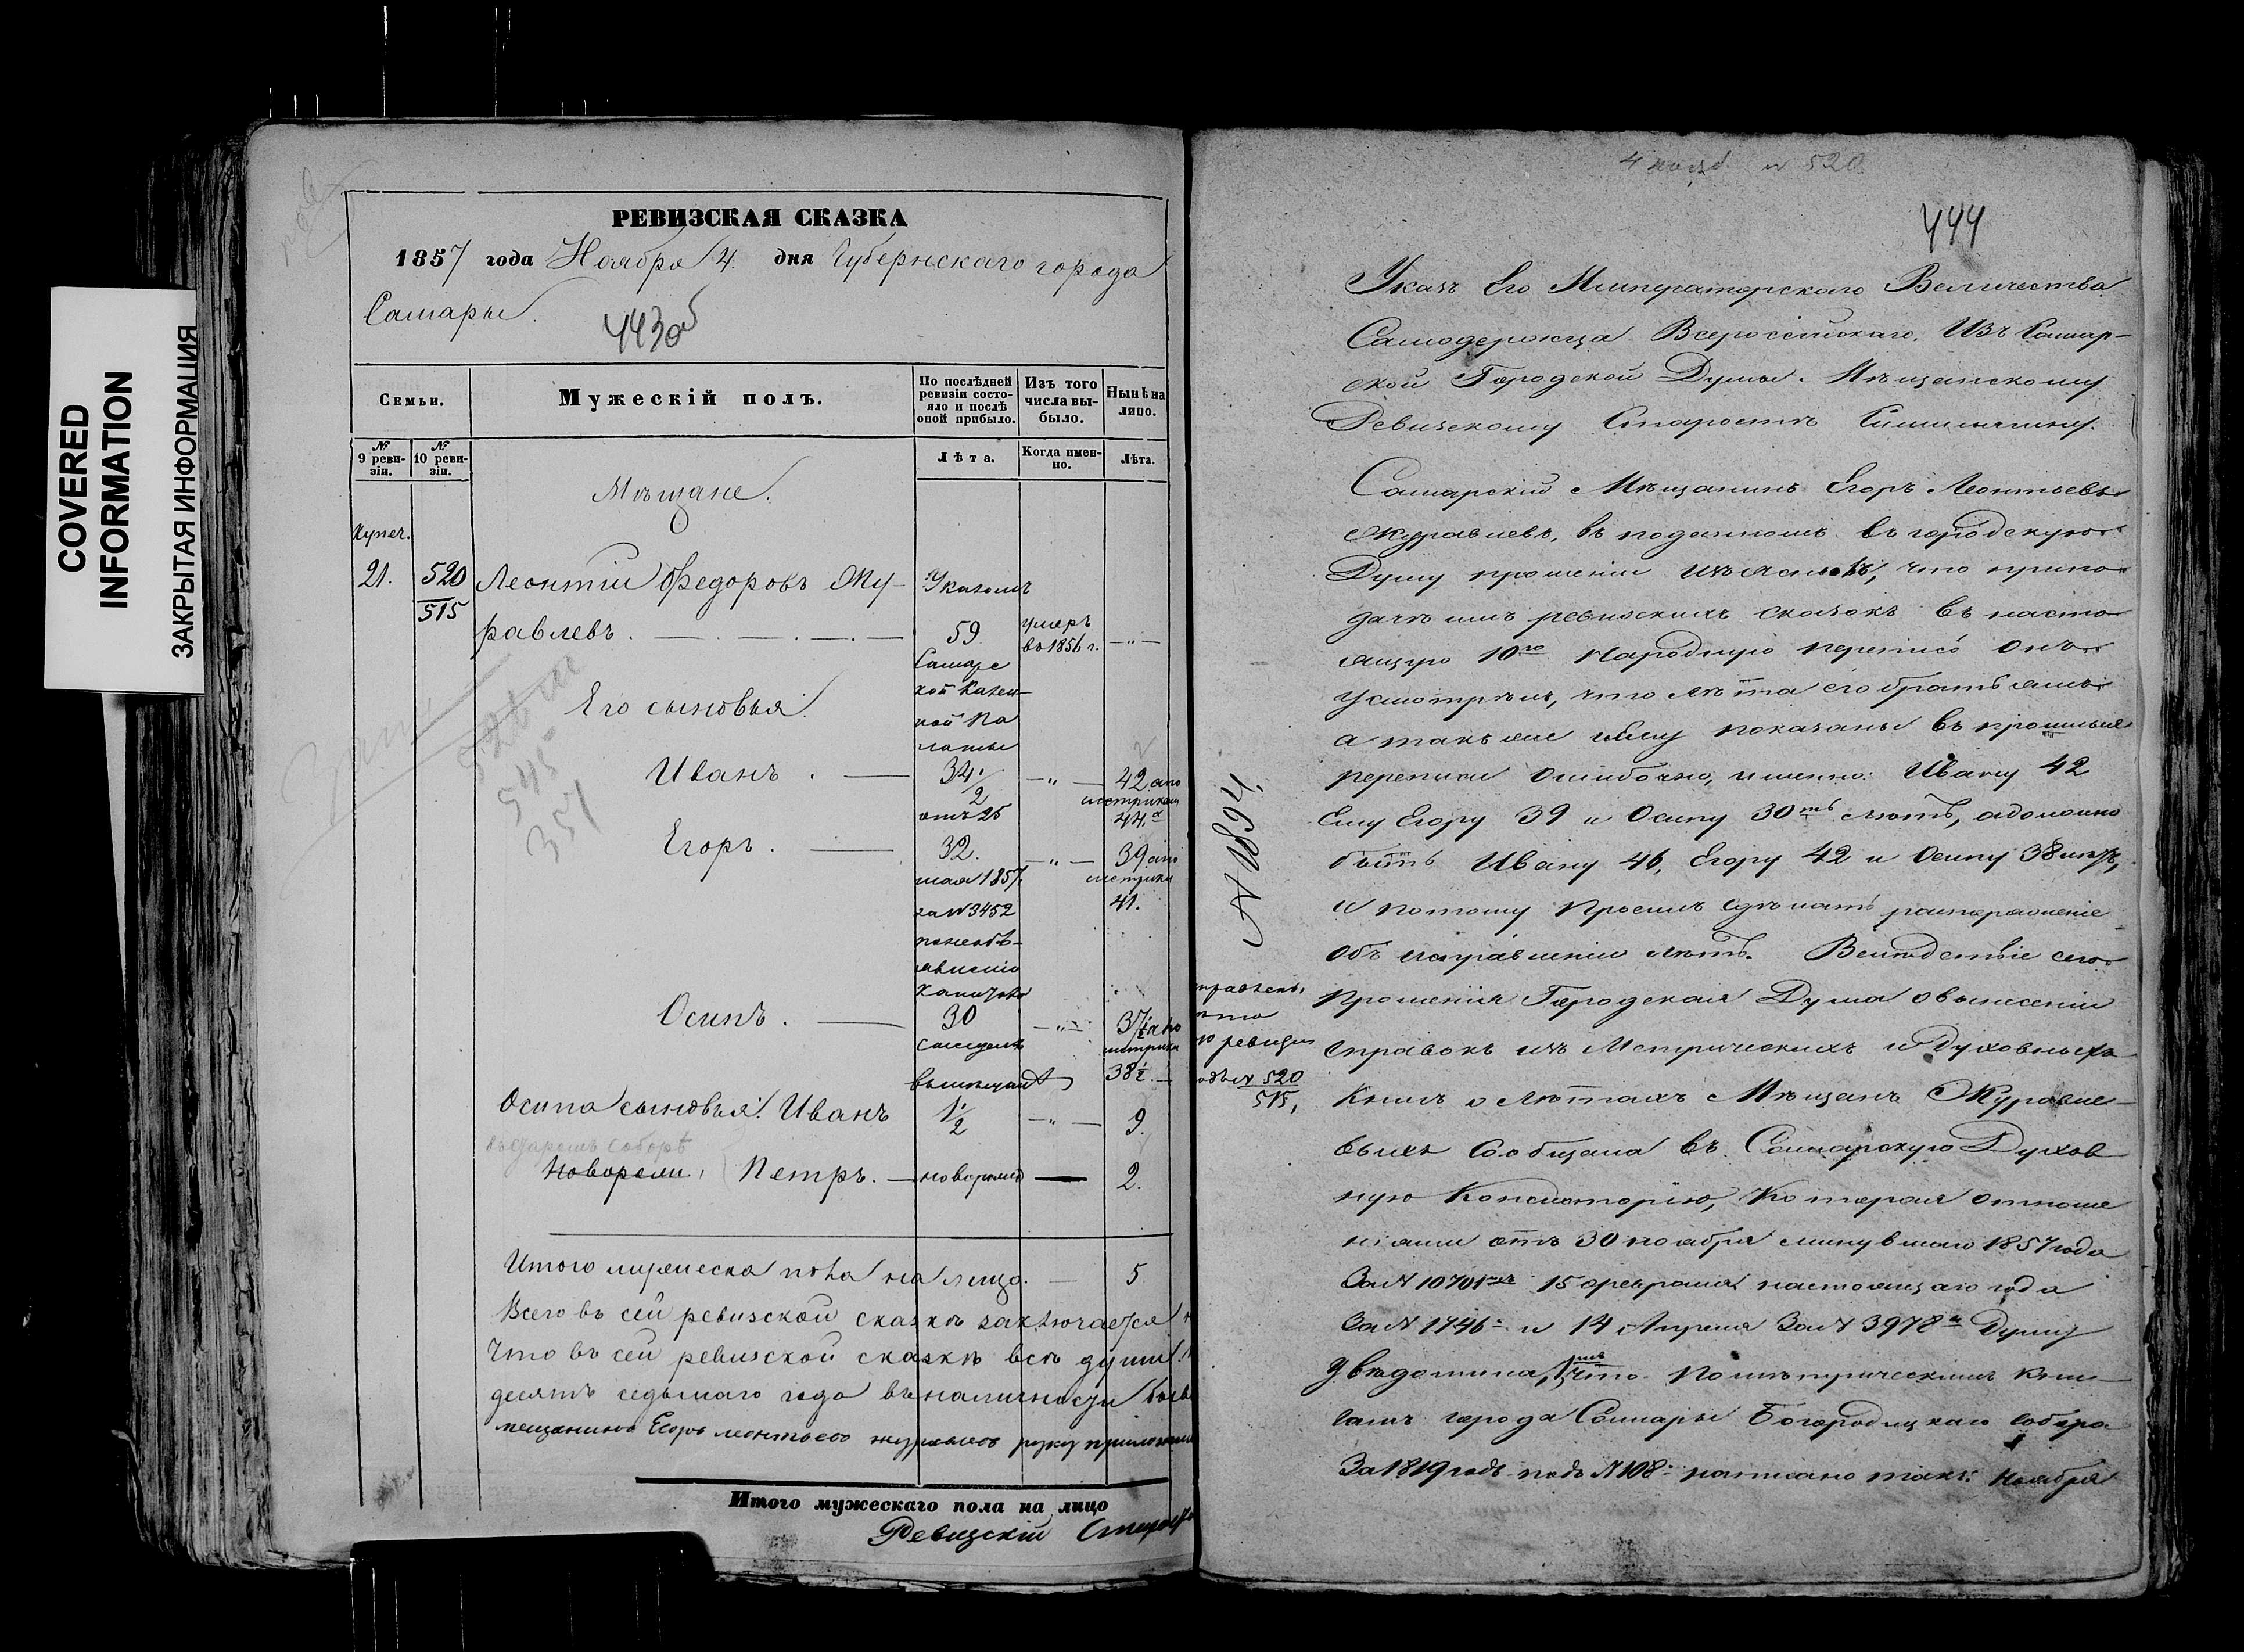 COVERED
INFORMATION
ЗАКРЫТАЯ ИНФОРМАЦИЯ
РЕВИЗСКАЯ СКАЗКА
1857 года Ноября 4 дня Губернскаго города
Самары.
443об
Семьи.
Мужескій полъ.
По послѣдней ревизіи состояло и послѣ оной прибыло.
Изъ того числа выбыло.
Нынѣ на лицо.
№ 9 ревизіи.
№ 10 ревизіи.
Лѣта.
Когда именно.
Лѣта.
Мѣщане.
Купеч.
21. 520/515 Леонтій Федоровъ Жу-
равлевъ. 59 умеръ въ 1856 г. —"—
Указомъ
Самарс
кой Казен-
ной Па
латы
Его сыновья:
Иванъ. 34 1/2 —"— 42 а по
метрикам
44.
отъ 25
Егоръ. 32. —"— 39 а по
метрике
41.
мая 1857
за № 3452
Осипъ. 30 —"— 37 1/2 а по
метрике
38 1/2
Осипа сыновья: Иванъ 1/2 —"— 9.
Новорож. Петръ. — новорожд — 2.
528
545
351
Итого мужеска пола на лицо. — 5
Всего въ сей ревизской сказкѣ заключается
Что въ сей ревизской сказкѣ всѣ души
десятъ седьмаго года въ наличности
мещанинъ Егоръ леонтьевъ журавлевъ руку приложилъ
Итого мужескаго пола на лицо
Ревизскій Старос
4 нояб. № 520
444
Указъ Его Императорскаго Величества
Самодержца Всероссійскаго. Изъ Самар-
ской Городской Думы. Мѣщанскому
Ревизскому Старостѣ
Самарскій Мѣщанинъ Егоръ Леонтьевъ
Журавлевъ, въ поданномъ въ городскую
Думу прошеніи изъяснилъ, что при по-
дачѣ имъ ревизскихъ сказокъ въ насто-
ящую 10ю Народную перепись онъ
усмотрѣлъ, что лѣта его братьямъ
а также ему показаны въ прошлыя
переписи ошибочно, именно: Ивану 42
Ему Егору 39 и Осипу 30ть лѣтъ, а должно
быть Ивану 46, Егору 42 и Осипу 38 лѣтъ,
и потому просилъ сдѣлать распоряженіе
объ исправленіи лѣтъ. Вслѣдствіе сего
прошенія Городская Дума о вынесеніи
справокъ изъ Метрическихъ и Духовныхъ
книгъ о лѣтахъ Мѣщанъ Журавле-
выхъ сообщала въ Самарскую Духов
ную Консисторію, которая отноше
ніями отъ 30 ноября минувшаго 1857 года
за № 10701мъ 15 февраля настоящаго года
за № 1746 и 14 Апреля за № 3978 Думу
увѣдомила, что по метрическимъ кни-
гамъ города Самары Богородицкаго собора
за 1819 годъ подъ № 108 написано такъ: Ноября
№ 1894.
ревизіи
520
515,